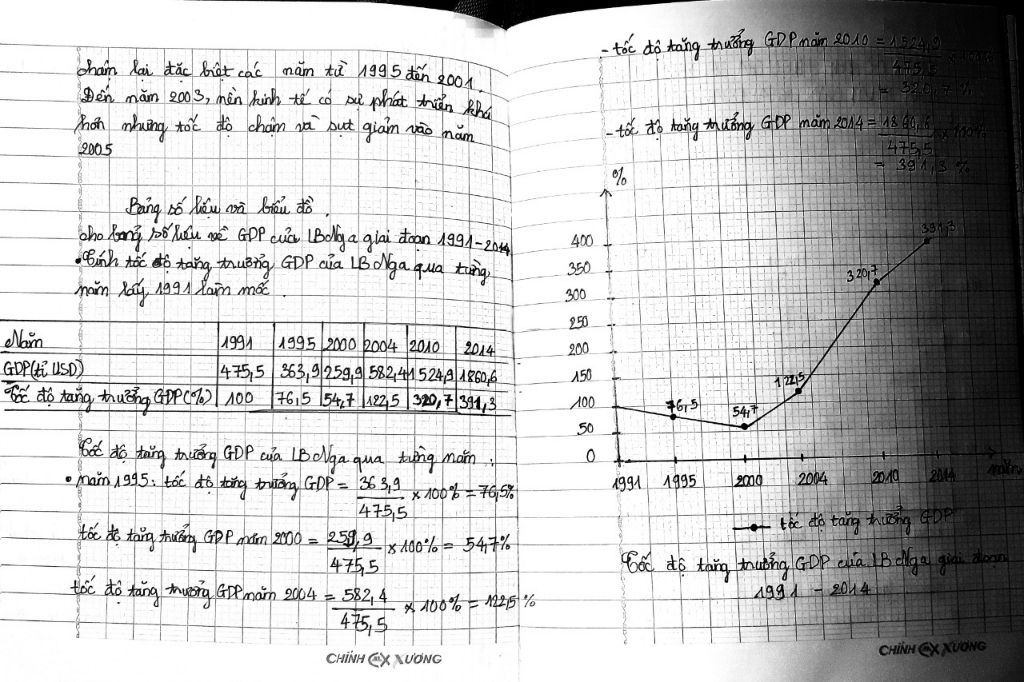 chậm lại đặc biệt các năm từ 1995 đến 2001.
Đến năm 2003, nền kinh tế có sự phát triển khá
hơn nhưng tốc độ chậm và sụt giảm vào năm
2005
Bảng số liệu và biểu đồ.
cho bảng số liệu về GDP của LB Nga giai đoạn 1991-2014
• Tính tốc độ tăng trưởng GDP của LB Nga qua từng
năm lấy 1991 làm mốc.
Năm 1991 1995 2000 2004 2010 2014
GDP (tỉ USD) 475,5 363,9 259,9 582,4 1524,9 1860,6
Tốc độ tăng trưởng GDP (%) 100 76,5 54,7 122,5 320,7 391,3
Tốc độ tăng trưởng GDP của LB Nga qua từng năm:
• năm 1995: tốc độ tăng trưởng GDP = 363,9/475,5 × 100% = 76,5%
tốc độ tăng trưởng GDP năm 2000 = 259,9/475,5 × 100% = 54,7%
tốc độ tăng trưởng GDP năm 2004 = 582,4/475,5 × 100% = 122,5 %
CHÍNH CX XƯƠNG
- tốc độ tăng trưởng GDP năm 2010 = 1524,9/475,5
= 320,7 %
- tốc độ tăng trưởng GDP năm 2014 = 1860,6/475,5 × 100%
= 391,3 %
%
400
350
300
250
200
150
100
50
0
76,5
54,7
122,5
320,7
391,3
1991 1995 2000 2004 2010 2014 năm
tốc độ tăng trưởng GDP
Tốc độ tăng trưởng GDP của LB Nga giai đoạn
1991 - 2014
CHÍNH CX XƯƠNG